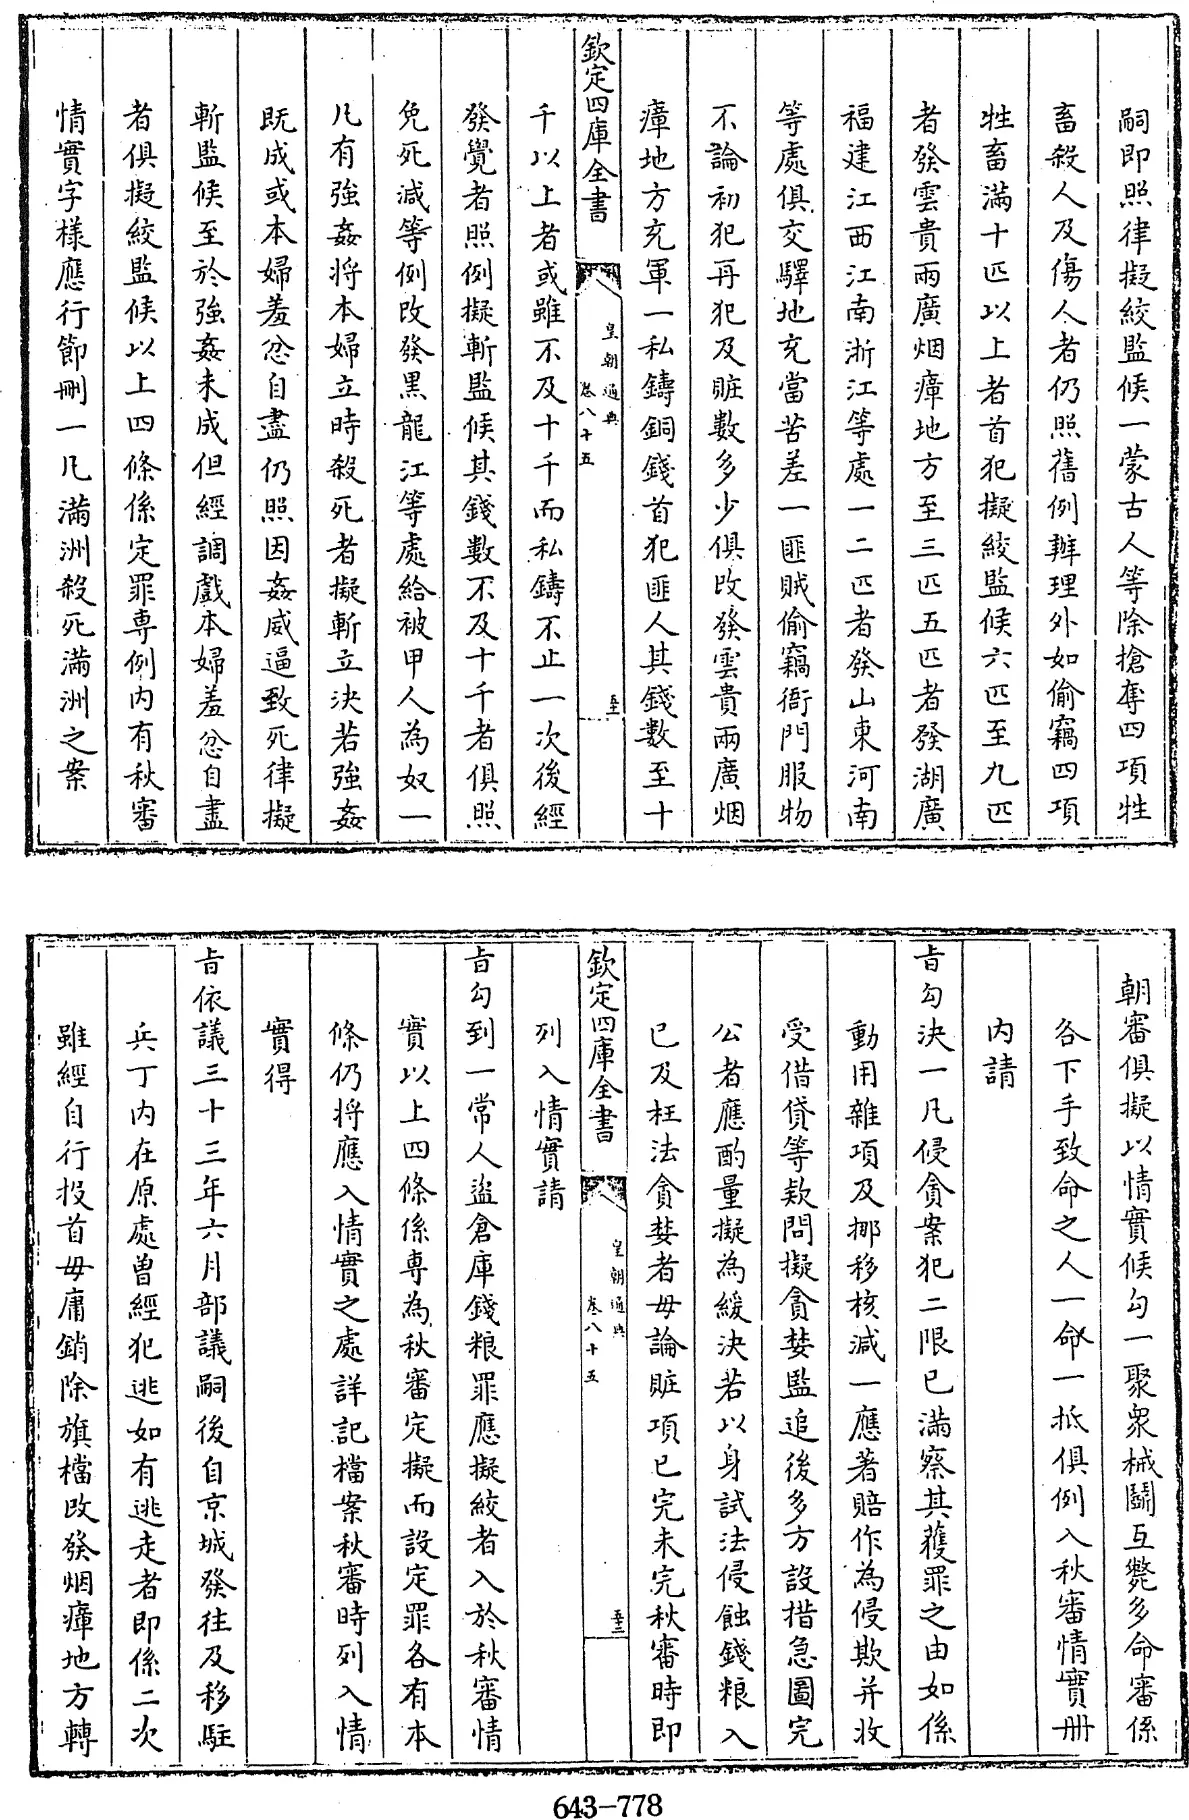 嗣即照律擬絞監候一蒙古人等除搶奪四項牲
畜殺人及傷人者仍照舊例辦理外如偷竊四項
牲畜滿十匹以上者首犯擬絞監候六匹至九匹
者發雲貴兩廣烟瘴地方至三匹五匹者發湖廣
福建江西江南浙江等處一二匹者發山東河南
等處俱交驛地充當苦差一匪賊偷竊衙門服物
不論初犯再犯及贓數多少俱改發雲貴兩廣烟
瘴地方充軍一私鑄銅錢首犯匪人其錢數至十
欽定四庫全書
皇朝通典
卷八十五
千以上者或雖不及十千而私鑄不止一次後經
發覺者照例擬斬監候其錢數不及十千者俱照
免死減等例改發黑龍江等處給被甲人為奴一
凡有強姦將本婦立時殺死者擬斬立決若強姦
既成或本婦羞忿自盡仍照因姦威逼致死律擬
斬監候至於強姦未成但經調戲本婦羞忿自盡
者俱擬絞監候以上四條係定罪專例内有秋審
情實字樣應行節刪一凡滿洲殺死滿洲之案
朝審俱擬以情實候勾一聚衆械鬭互斃多命審係
各下手致命之人一命一抵俱例入秋審情實冊
内請
㫖勾決一凡侵貪案犯二限已滿察其獲罪之由如係
動用雜項及挪移核減一應著賠作為侵欺并收
受借貸等款問擬貪婪監追後多方設措急圖完
公者應酌量擬為緩決若以身試法侵蝕錢粮入
已及枉法貪婪者毋論贓項已完未完秋審時即
欽定四庫全書
皇朝通典
卷八十五
列入情實請
㫖勾到一常人盜倉庫錢粮罪應擬絞者入於秋審情
實以上四條係專為秋審定擬而設定罪各有本
條仍將應入情實之處詳記檔案秋審時列入情
實得
㫖依議三十三年六月部議嗣後自京城發往及移駐
兵丁内在原處曾經犯逃如有逃走者即係二次
雖經自行投首毋庸銷除旗檔改發烟瘴地方轉
643-778